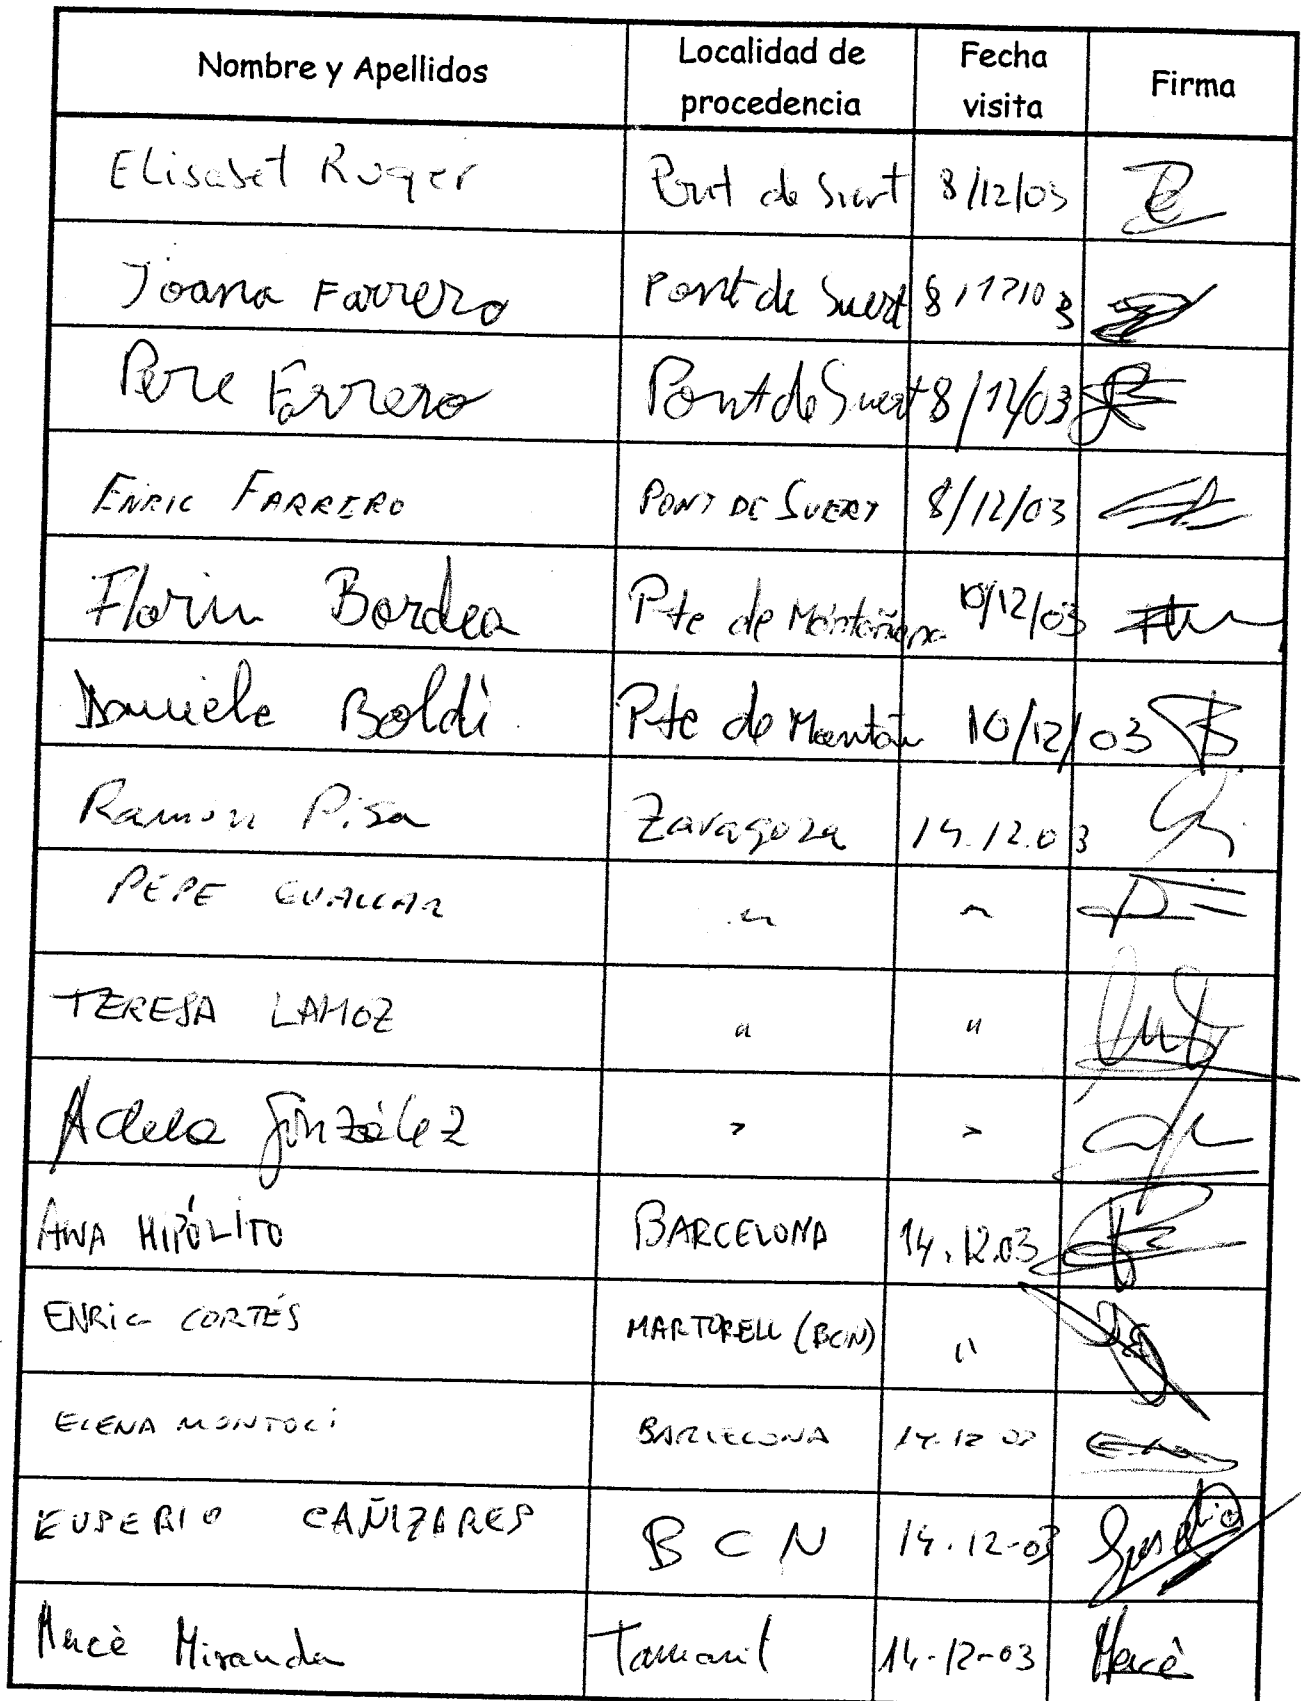 Nombre y Apellidos Localidad de procedencia Fecha visita Firma
Elisabet Ruger Pont de Siert 8/12/03
Joana Farrero Pont de Suert 8/12/03
Pere Farrero Pont de Suert 8/12/03
ENRIC FARRERO PONT DE SUERT 8/12/03
Florin Bordea Pte de Montañana 10/12/03
Daniele Boldi Pte de Montañ 10/12/03
Ramón Pisa Zaragoza 14.12.03
PEPE GUALLAR " "
TERESA LAMOZ " "
Adela González " "
ANA HIPÓLITO BARCELONA 14.12.03
ENRIC CORTÉS MARTORELL (BCN) "
ELENA MONTOLÍ BARCELONA 14.12.03
EUSEBIO CAÑIZARES BCN 14.12-03 Eusebio
Mercè Miranda Tamarit 14-12-03 Mercè